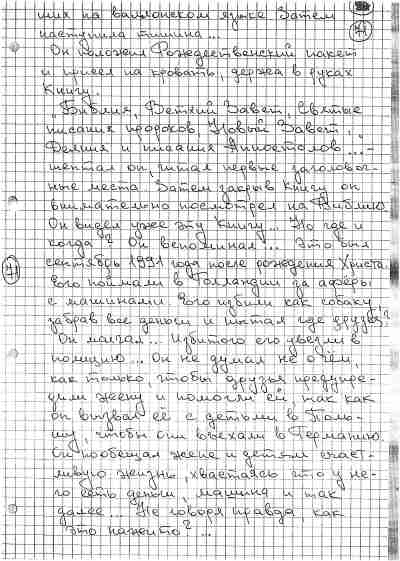 ших на валлонском языке Затем
наступила тишина...
Он положил Рождественский пакет
и присел на кровать, держа в руках
Книгу.
„Библия, Ветхий Завет, Святые
писания пророков, Новый Завет,
Деяния и писания Аппостолов ...-
шептал он, читал первые заголовоч-
ные места. Затем закрыв Книгу он
внимательно посмотрел на Библию
Он видел уже эту Книгу... Но где и
когда? Он вспоминал... Это был
сентябрь 1991 года после рождения Христа
его поймали в Голландии за аферы
с машинами. Его избили как собаку
забрав все деньги и пытая где друзья?
Он молчал... Избитого его увезли в
полицию... Он не думал не о чём,
как только, чтобы друзья предупре-
дили жену и помогли ей, так как
он вызвал её с детьми в Поль-
шу, чтобы они въехали в Германию.
Он пообещал жене и детям счаст-
ливую жизнь, хвастаясь что у не-
го есть деньги, машина и так
далее... Не говоря правда, как
это нажито? ...
71
71